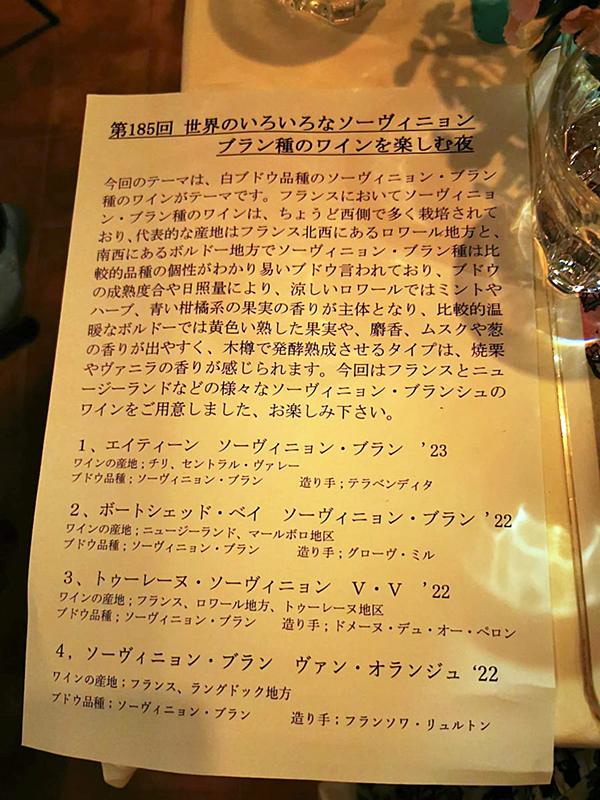 第185回 世界のいろいろなソーヴィニョン
ブラン種のワインを楽しむ夜
今回のテーマは、白ブドウ品種のソーヴィニョン・ブラン
種のワインがテーマです。フランスにおいてソーヴィニョ
ン・ブラン種のワインは、ちょうど西側で多く栽培されて
おり、代表的な産地はフランス北西にあるロワール地方と、
南西にあるボルドー地方でソーヴィニョン・ブラン種は比
較的品種の個性がわかり易いブドウ言われており、ブドウ
の成熟度合や日照量により、涼しいロワールではミントや
ハーブ、青い柑橘系の果実の香りが主体となり、比較的温
暖なボルドーでは黄色い熟した果実や、麝香、ムスクや葱
の香りが出やすく、木樽で発酵熟成させるタイプは、焼栗
やヴァニラの香りが感じられます。今回はフランスとニュ
ージーランドなどの様々なソーヴィニョン・ブランシュの
ワインをご用意しました、お楽しみ下さい。
1、エイティーン ソーヴィニョン・ブラン ’23
ワインの産地；チリ、セントラル・ヴァレー
ブドウ品種；ソーヴィニョン・ブラン 造り手；テラベンディタ
2、ボートシェッド・ベイ ソーヴィニョン・ブラン ’22
ワインの産地；ニュージーランド、マールボロ地区
ブドウ品種；ソーヴィニョン・ブラン 造り手；グローヴ・ミル
3、トゥーレーヌ・ソーヴィニョン V・V ’22
ワインの産地；フランス、ロワール地方、トゥーレーヌ地区
ブドウ品種；ソーヴィニョン・ブラン 造り手；ドメーヌ・デュ・オー・ペロン
4，ソーヴィニョン・ブラン ヴァン・オランジュ ‘22
ワインの産地；フランス、ラングドック地方
ブドウ品種；ソーヴィニョン・ブラン 造り手；フランソワ・リュルトン